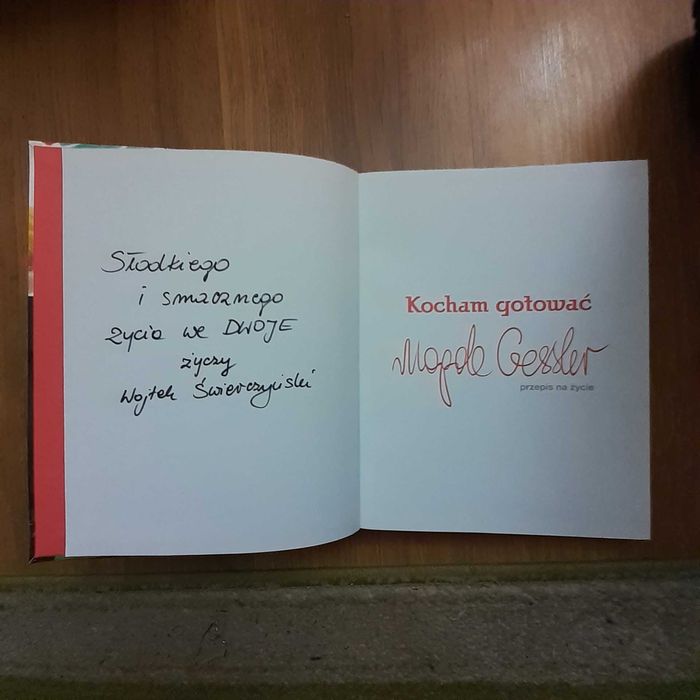 Słodkiego
i smacznego
życia we DWOJE
życzy
Wojtek Świerczyński
Kocham gotować
Magda Gessler
przepis na życie